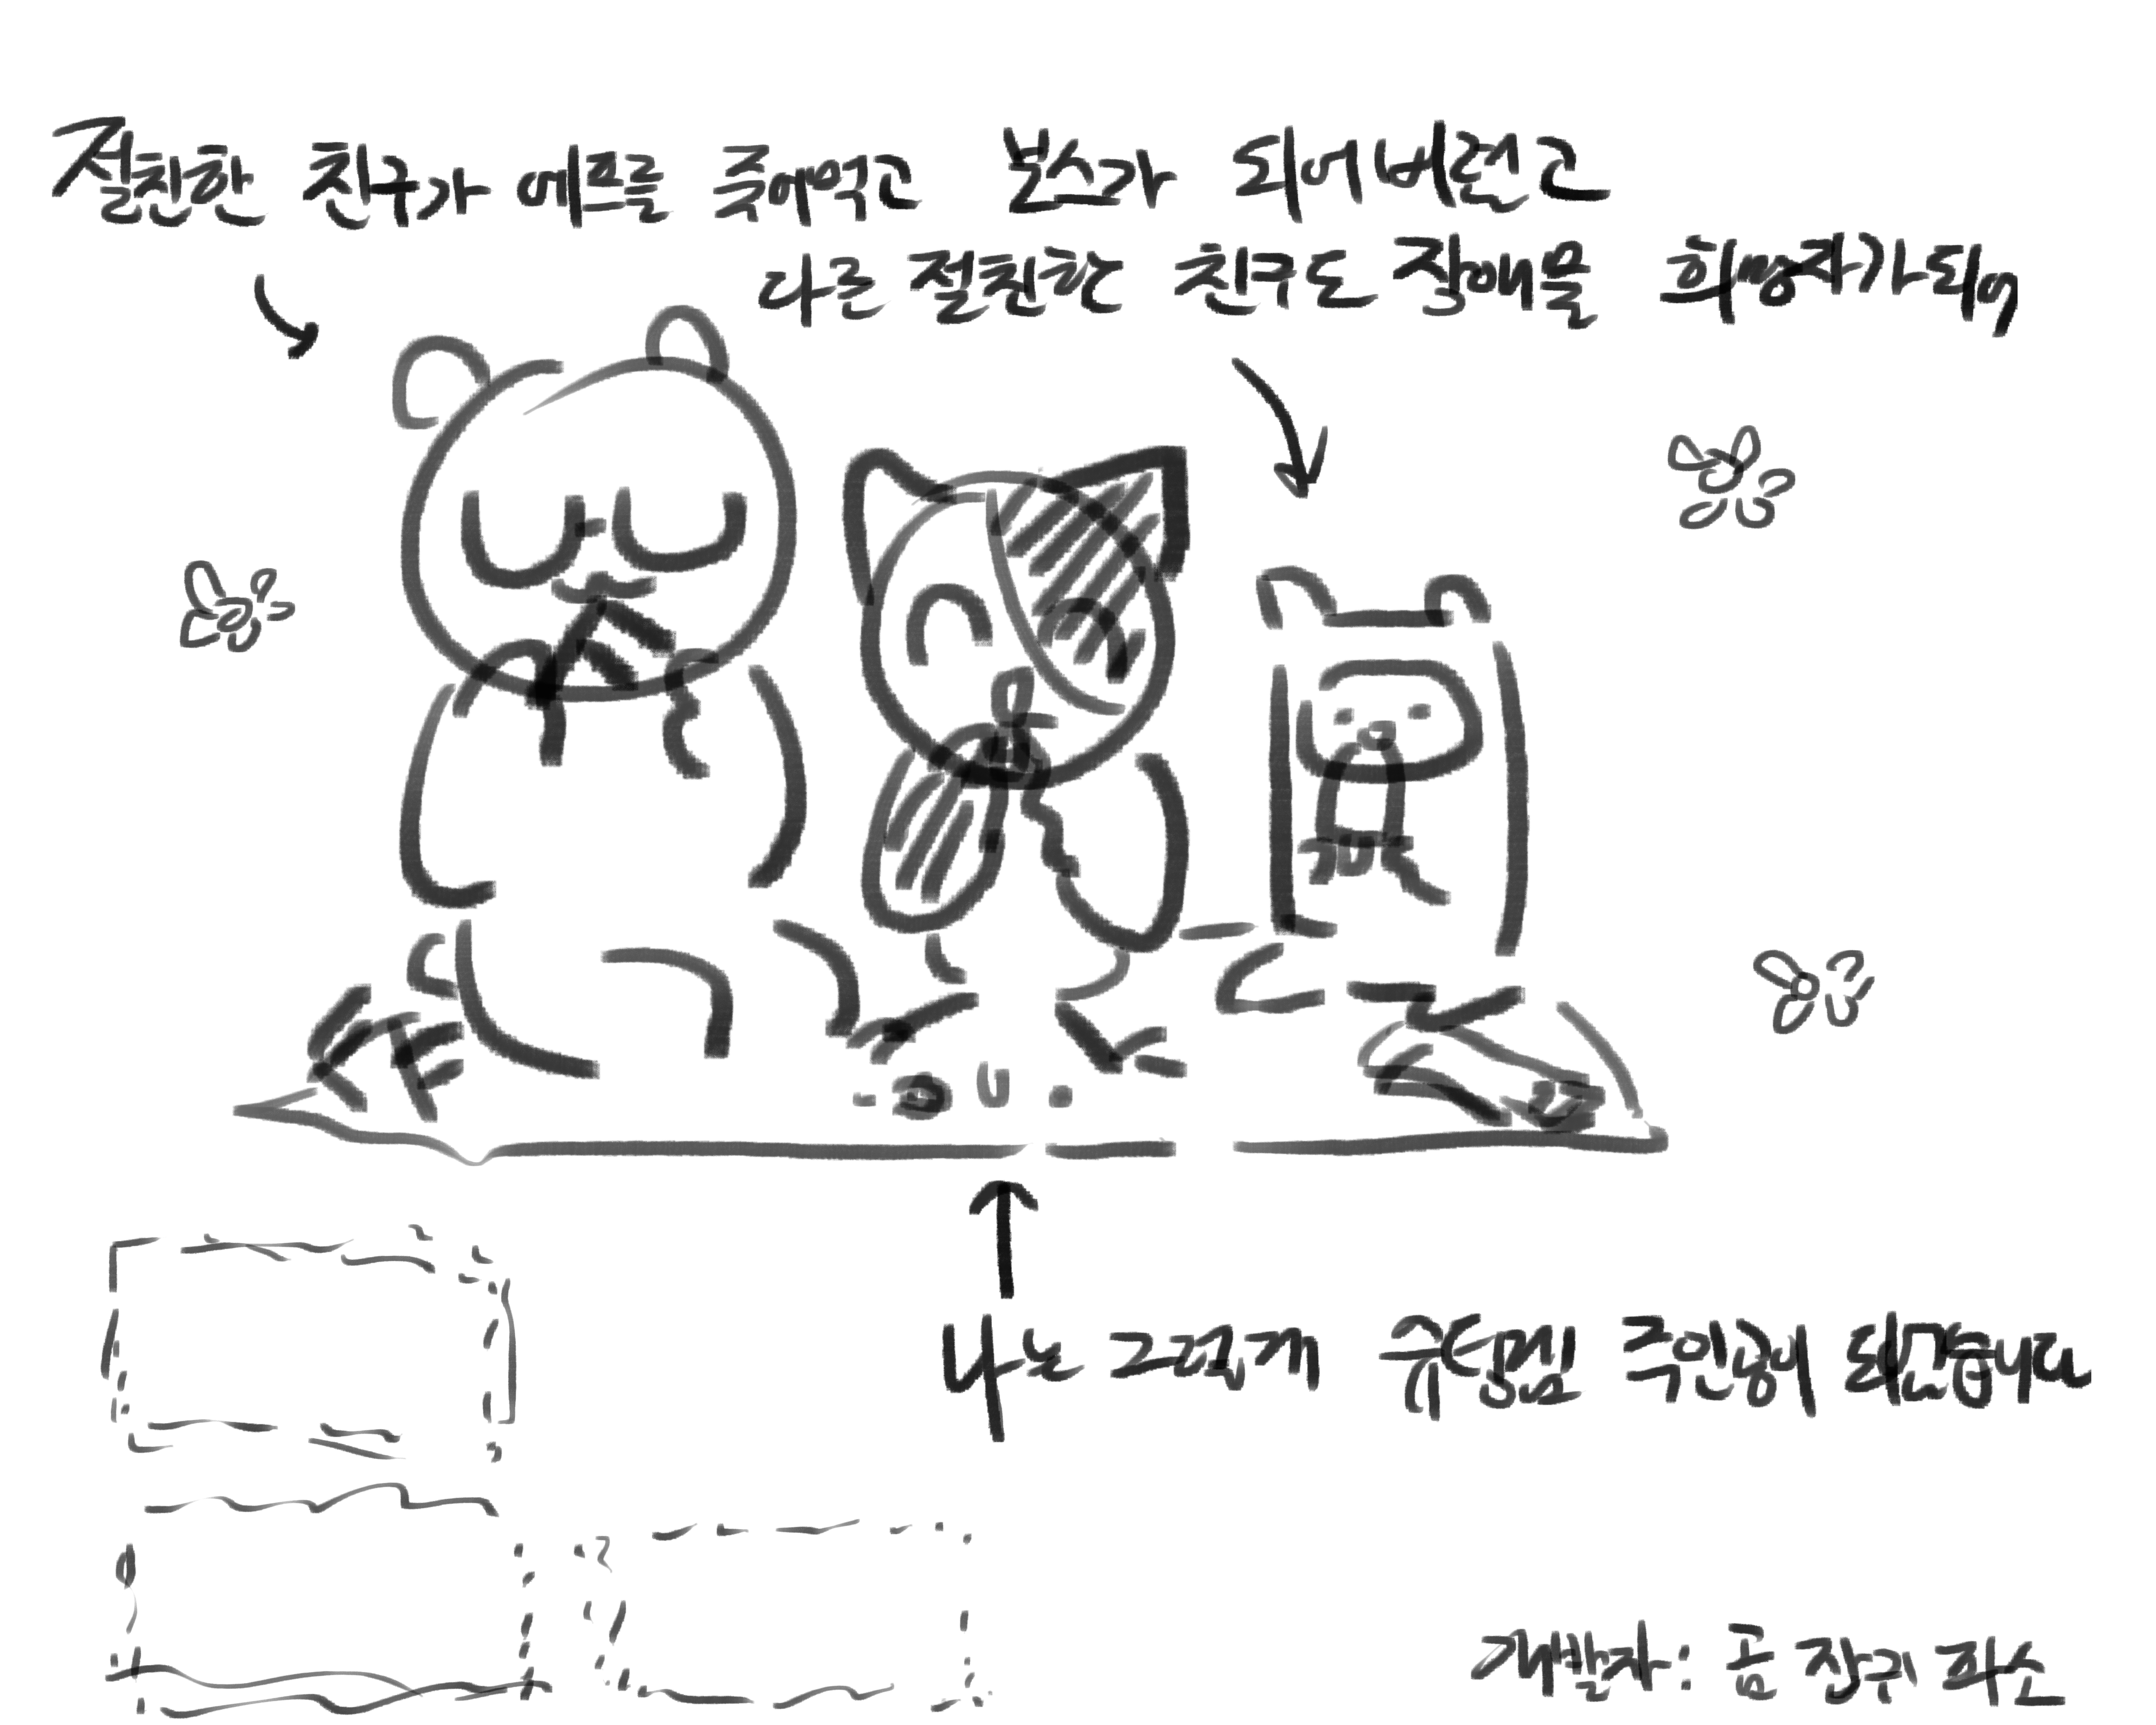 절친한 친구가 에프를 죽어먹고 보스가 되어버렸고
다른 절친한 친구도 장애물 희망자가되어
나는 그렇게 유일템 주인공이 되었습니다
개발자: 곰 장귀 파소